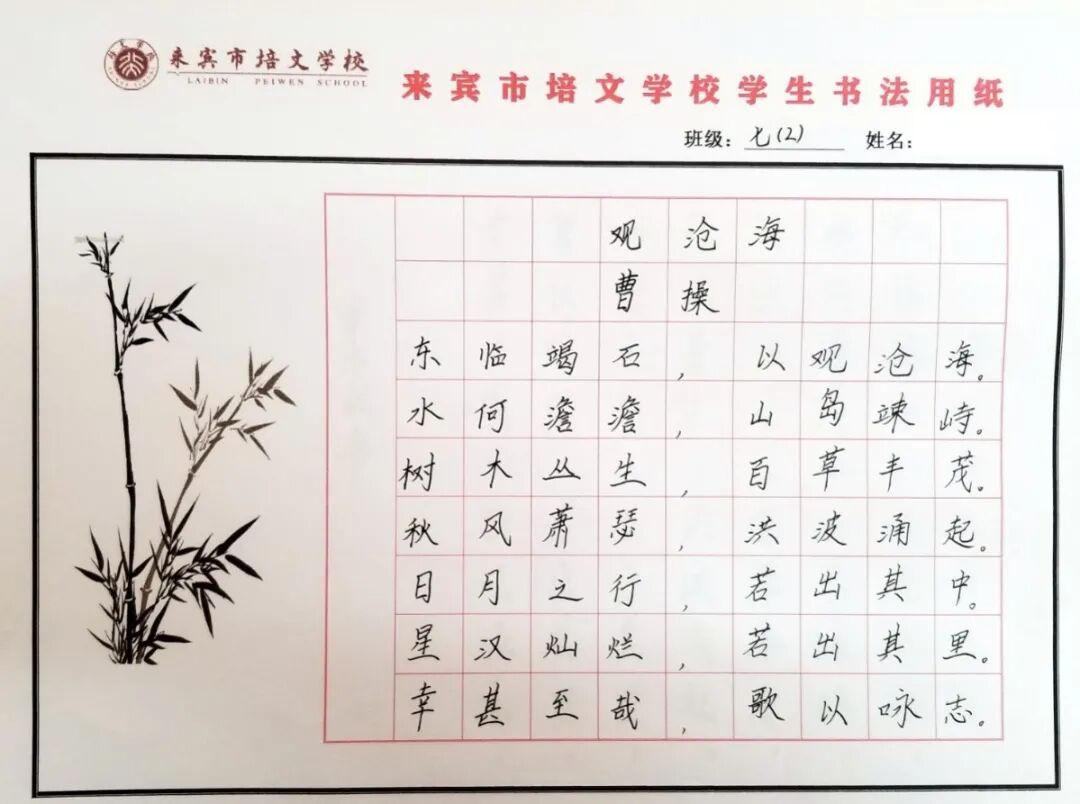 来宾市培文学校
LAIBIN PEIWEN SCHOOL
来宾市培文学校学生书法用纸
班级：七(2) 姓名：
观沧海
曹操
东临竭石，以观沧海。
水何澹澹，山岛竦峙。
树木丛生，百草丰茂。
秋风萧瑟，洪波涌起。
日月之行，若出其中。
星汉灿烂，若出其里。
幸甚至哉，歌以咏志。